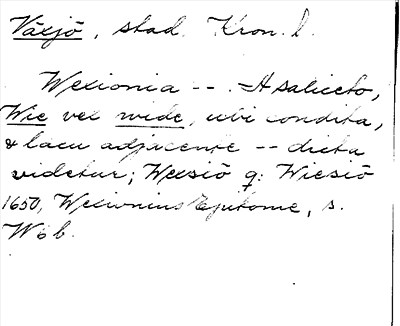 Växjö, stad. Kron. l.
Wexionia -- . A saliceto,
Wie vel wide, ubi condita,
& lacu adjacente -- dicta
videtur; Wexsiö q: Wiesiö
1650, Wexionius Epitome, s.
W6b.